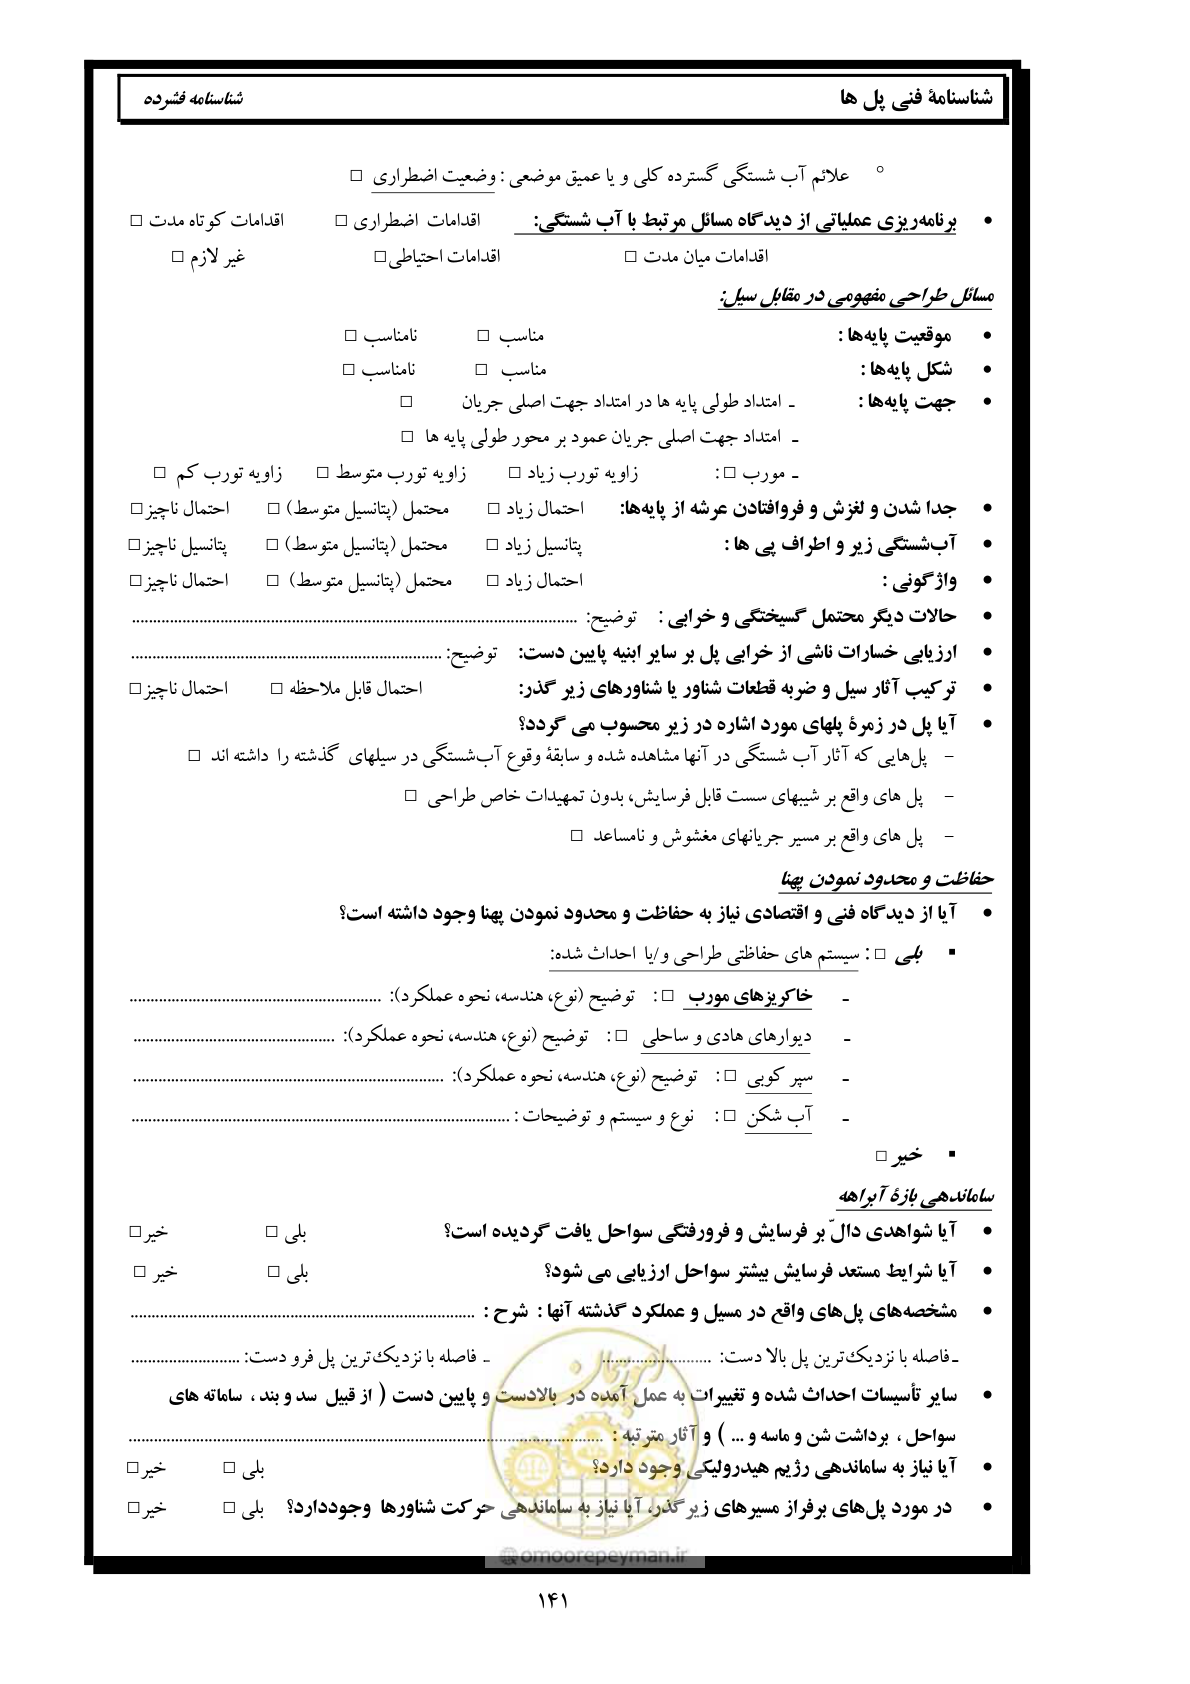 شناسنامهٔ فنی پل ها
شناسنامه فشرده
° علائم آب شستگی گسترده کلی و یا عمیق موضعی : وضعیت اضطراری □
• برنامه‌ریزی عملیاتی از دیدگاه مسائل مرتبط با آب شستگی: اقدامات اضطراری □ اقدامات کوتاه مدت □
اقدامات میان مدت □ اقدامات احتیاطی □ غیر لازم □
مسائل طراحی مفهومی در مقابل سیل:
• موقعیت پایه‌ها : مناسب □ نامناسب □
• شکل پایه‌ها : مناسب □ نامناسب □
• جهت پایه‌ها : ـ امتداد طولی پایه ها در امتداد جهت اصلی جریان □
ـ امتداد جهت اصلی جریان عمود بر محور طولی پایه ها □
ـ مورب □ : زاویه تورب زیاد □ زاویه تورب متوسط □ زاویه تورب کم □
• جدا شدن و لغزش و فروافتادن عرشه از پایه‌ها: احتمال زیاد □ محتمل (پتانسیل متوسط) □ احتمال ناچیز □
• آب‌شستگی زیر و اطراف پی ها : پتانسیل زیاد □ محتمل (پتانسیل متوسط) □ پتانسیل ناچیز □
• واژگونی : احتمال زیاد □ محتمل (پتانسیل متوسط) □ احتمال ناچیز □
• حالات دیگر محتمل گسیختگی و خرابی : توضیح: ..........................................................................................................
• ارزیابی خسارات ناشی از خرابی پل بر سایر ابنیه پایین دست: توضیح: ..........................................................................
• ترکیب آثار سیل و ضربه قطعات شناور یا شناورهای زیر گذر: احتمال قابل ملاحظه □ احتمال ناچیز □
• آیا پل در زمرهٔ پلهای مورد اشاره در زیر محسوب می گردد؟
– پل‌هایی که آثار آب شستگی در آنها مشاهده شده و سابقهٔ وقوع آب‌شستگی در سیلهای گذشته را داشته اند □
– پل های واقع بر شیبهای سست قابل فرسایش، بدون تمهیدات خاص طراحی □
– پل های واقع بر مسیر جریانهای مغشوش و نامساعد □
حفاظت و محدود نمودن پهنا
• آیا از دیدگاه فنی و اقتصادی نیاز به حفاظت و محدود نمودن پهنا وجود داشته است؟
▪ بلی □ : سیستم های حفاظتی طراحی و/یا احداث شده:
ـ خاکریزهای مورب □ : توضیح (نوع، هندسه، نحوه عملکرد): ............................................................
ـ دیوارهای هادی و ساحلی □ : توضیح (نوع، هندسه، نحوه عملکرد): ................................................
ـ سپر کوبی □ : توضیح (نوع، هندسه، نحوه عملکرد): ..........................................................................
ـ آب شکن □ : نوع و سیستم و توضیحات : ..........................................................................................
▪ خیر □
ساماندهی بازهٔ آبراهه
• آیا شواهدی دالّ بر فرسایش و فرورفتگی سواحل یافت گردیده است؟ بلی □ خیر □
• آیا شرایط مستعد فرسایش بیشتر سواحل ارزیابی می شود؟ بلی □ خیر □
• مشخصه‌های پل‌های واقع در مسیل و عملکرد گذشته آنها : شرح : ..................................................................................
ـ فاصله با نزدیک‌ترین پل بالا دست: .......................... ـ فاصله با نزدیک‌ترین پل فرو دست: ..........................
• سایر تأسیسات احداث شده و تغییرات به عمل آمده در بالادست و پایین دست ( از قبیل سد و بند ، ساماته های
سواحل ، برداشت شن و ماسه و ... ) و آثار مترتبه : ..................................................................................................................
• آیا نیاز به ساماندهی رژیم هیدرولیکی وجود دارد؟ بلی □ خیر □
• در مورد پل‌های برفراز مسیرهای زیرگذر، آیا نیاز به ساماندهی حرکت شناورها وجوددارد؟ بلی □ خیر □
امور پیمان
@omoorepeyman.ir
۱۴۱